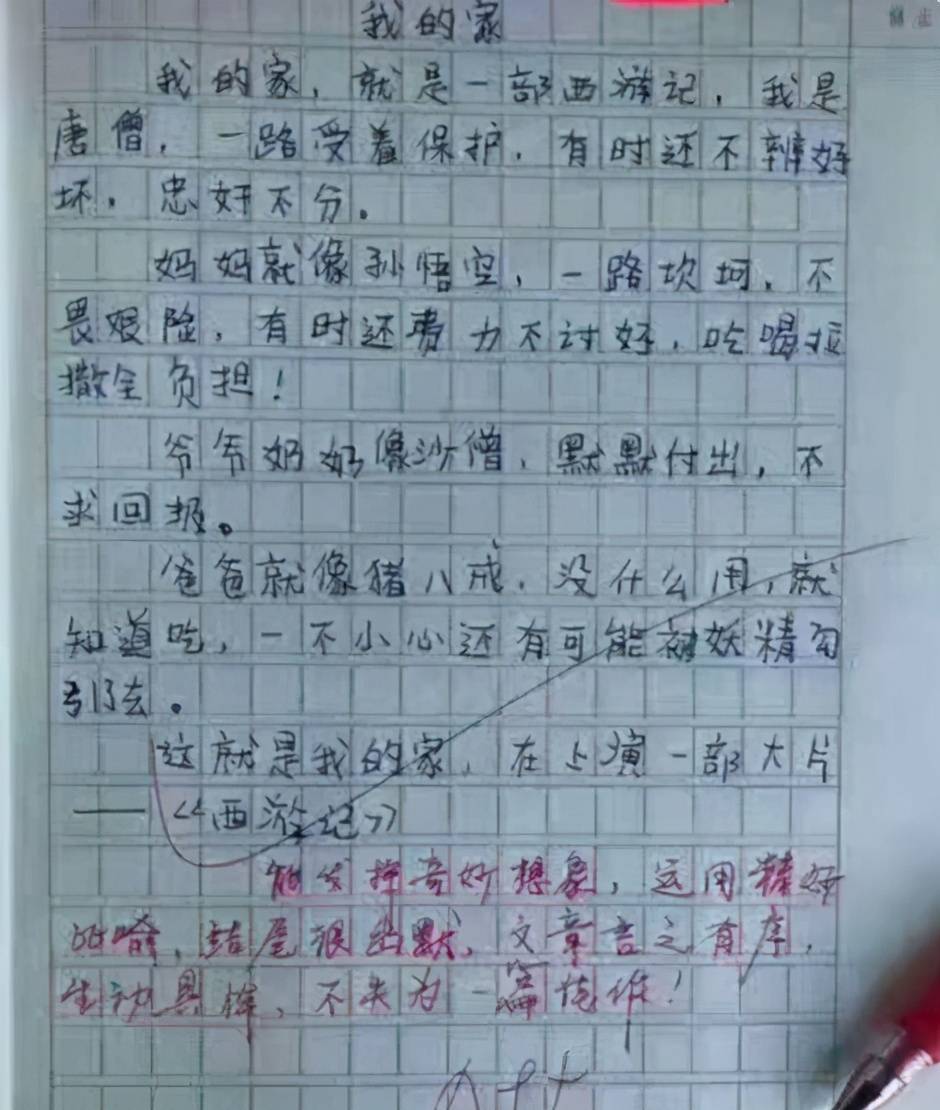 我的家
我的家，就是一部西游记，我是
唐僧，一路受着保护，有时还不辨好
坏，忠奸不分。
妈妈就像孙悟空，一路坎坷，不
畏艰险，有时还费力不讨好，吃喝拉
撒全负担！
爷爷奶奶像沙僧，默默付出，不
求回报。
爸爸就像猪八戒，没什么用，就
知道吃，一不小心还有可能被妖精勾
引了去。
这就是我的家，在上演一部大片
——《西游记》
能发挥奇妙想象，运用精妙
比喻，结尾很幽默，文章言之有序，
生动具体，不失为一篇佳作！
A++